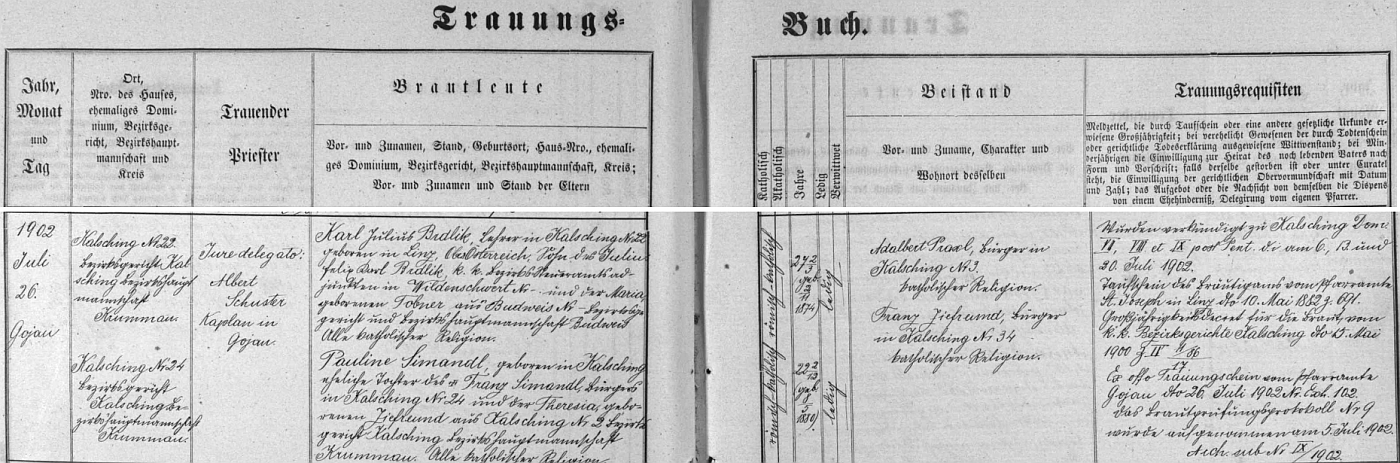 Trauungs-
Buch.
Jahr,
Monat
und
Tag
Ort,
Nro. des Hauses,
ehemaliges Domi-
nium, Bezirksge-
richt, Bezirkshaupt-
mannschaft und
Kreis
Trauender
Priester
Brautleute
Vor- und Zunamen, Stand, Geburtsort, Haus-Nro., ehemali-
ges Dominium, Bezirksgericht, Bezirkshauptmannschaft, Kreis;
Vor- und Zunamen und Stand der Eltern
Katholisch
Akatholisch
Jahre
Ledig
Verwittwet
Beistand
Vor- und Zuname, Charakter und
Wohnort desselben
Trauungsrequisiten
Meldzettel, die durch Taufschein oder eine andere gesetzliche Urkunde er-
wiesene Großjährigkeit; bei verehelicht Gewesenen der durch Todtenschein
oder gerichtliche Todeserklärung ausgewiesene Wittwenstand; bei Min-
derjährigen die Einwilligung zur Heirat des noch lebenden Vaters nach
Form und Vorschrift; falls derselbe gestorben ist oder unter Curatel
steht, die Einwilligung der gerichtlichen Obervormundschaft mit Datum
und Zahl; das Aufgebot oder die Nachsicht von demselben die Dispens
von einem Ehehinderniß, Delegirung vom eigenen Pfarrer.
1902
Juli
26.
Gojau
Kalsching Nr. 22
Bezirksgericht Kal-
sching Bezirkshaupt
mannschaft
Krummau.
Kalsching Nr. 24
Bezirksgericht
Kalsching Be-
zirkshauptmannschaft
Krummau.
Jure delegato:
Albert
Schuster
Kaplan in
Gojau.
Karl Julius Bidlik, Lehrer in Kalsching Nr. 22
geboren in Linz, Ober Österreich, Sohn des Julius
Felix Karl Bidlik, k. k. Bezirks Steueramts ad-
junkten in Wildenschwert Nr - und der Maria
geborenen Tobner aus Budweis Nr - Bezirksge
gericht und Bezirkshauptmannschaft Budweis
Alle katholischer Religion.
Pauline Simandl, geboren in Kalsching
eheliche Tochter des Franz Simandl, Bürgers
in Kalsching Nr 24 und der Theresia, gebo-
renen Jichrund aus Kalsching Nr 2 Bezirks
gericht Kalsching Bezirkshauptmannschaft
Krummau. Alle katholischer Religion
römisch katholisch römisch katholisch
27
1874
ledig
22
geb
1880
ledig
Adalbert Praxl, Bürger in
Kalsching Nr 3.
katholischer Religion.
Franz Jichrund, Bürger
in Kalsching Nr 34
katholischer Religion.
Wurden verkündigt zu Kalsching Dom.
VII, VIII et IX post Pent. di am 6, 13 und
20. Juli 1902.
Taufschein des Bräutigams vom Pfarramte
St. Joseph in Linz dto 10. Mai 1882 z. 691.
Großjährigkeits Decret für die Braut vom
k. k. Bezirksgerichte Kalsching dto 15. Mai
1900
Ex offo Trauungschein vom Pfarramte
Gojau dto 26. Juli 1902 Nr. Exh. 102.
Das Brautprüfungsprotokoll Nr 9
wurde aufgenommen am 5. Juli 1902.
Arch. sub Nr IX/1902.